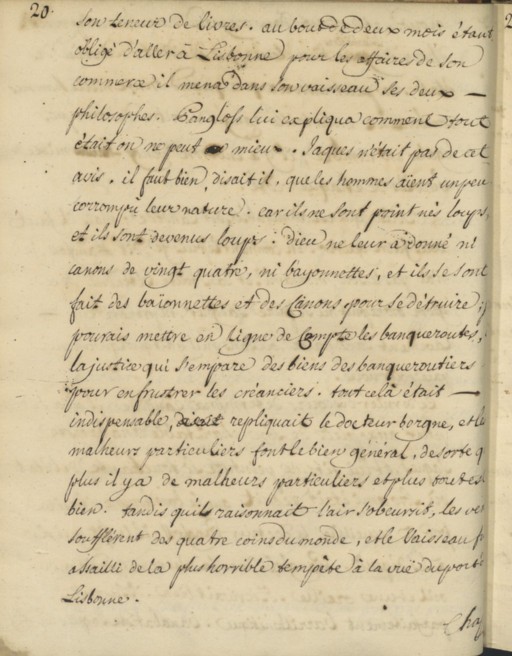 20.
son teneur de livres. au bout de deux mois étant
obligé d'aller à Lisbonne pour les affaires de son
commerce il mena dans son vaisseau ses deux —
philosophes. Panglofs lui expliqua comment tout
était on ne peut mieux. Jaques n'était pas de cet
avis. il faut bien, disait il, que les hommes aïent un peu
corrompu leur nature. car ils ne sont point nés loups,
et ils sont devenus loups: Dieu ne leur a donné ni
canons de vingt quatre, ni bayonnettes, et ils se sont
fait des baïonnettes et des Canons pour se détruire; j
pourais mettre en ligne de Compte les banqueroutes,
la justice qui s'empare des biens des banqueroutiers
pour en frustrer les créanciers. tout celà était —
indispensable, disait repliquait le docteur borgne, et le
malheurs particuliers font le bien général, de sorte q
plus il y a de malheurs particuliers et plus tout es
bien. tandis qu'ils raisonnait l'air s'obcurcit, les ve
soufflérent des quatre coins du monde, et le Vaisseau f
assailli de la plus horrible tempête à la vuë du port
Lisbonne.
Cha